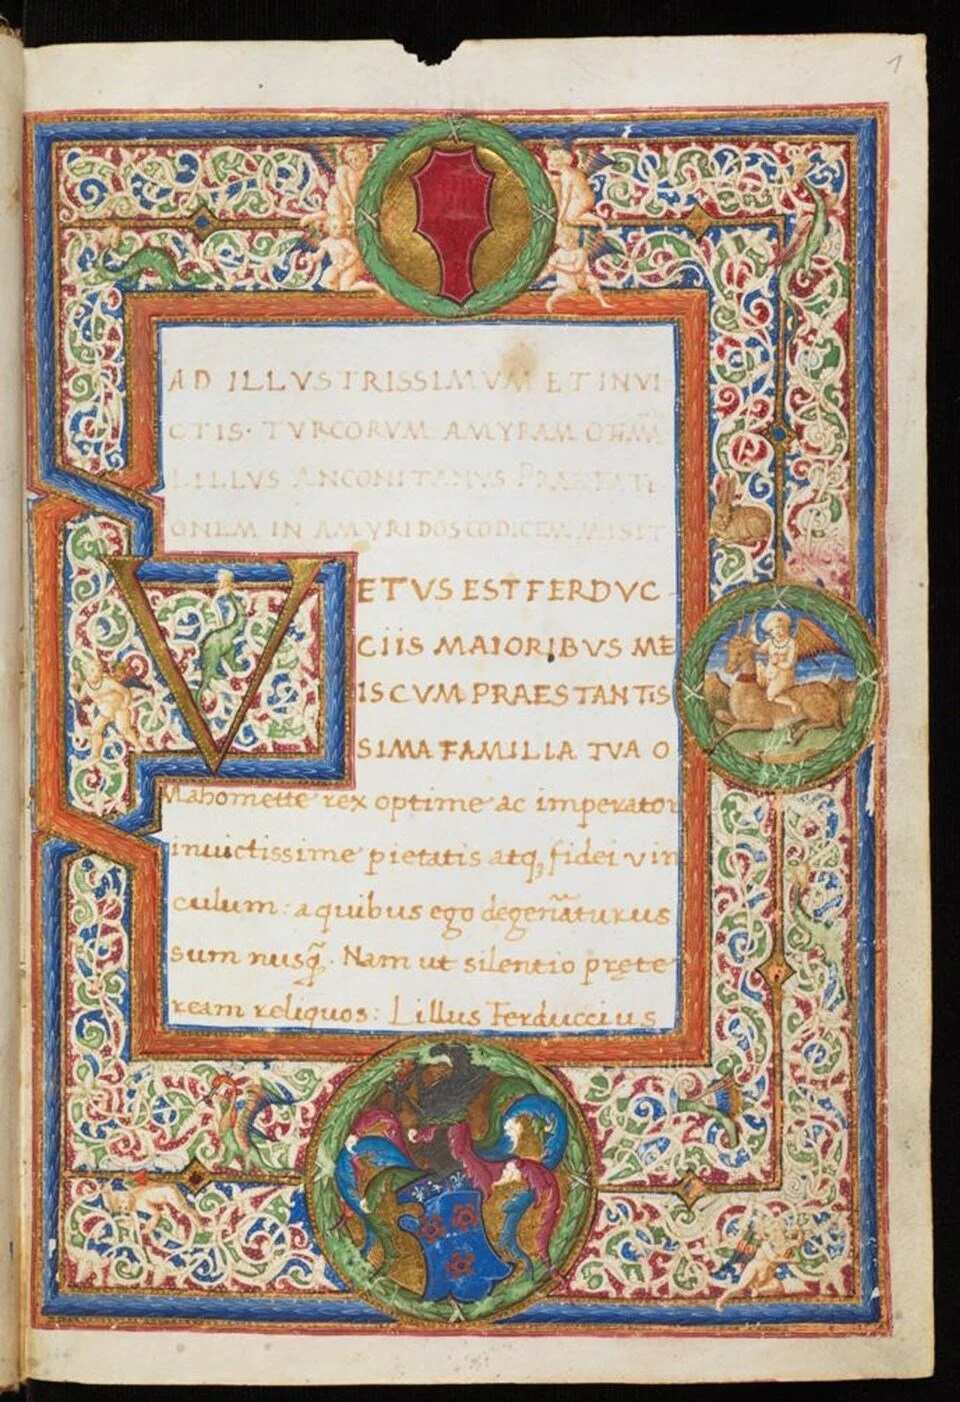 1
AD ILLVSTRISSIMVM ET INVI
CTIS· TVRCORVM AMYRAM
LILLVS ANCONITANVS PRAEFATI
ONEM IN AMYRIDOS CODICEM MISIT
VETVS EST FERDVC-
CIIS MAIORIBVS ME
IS CVM PRAESTANTIS
SIMA FAMILIA TVA O
Mahomette rex optime ac imperator
inuictissime pietatis atq; fidei vin
culum: a quibus ego degen̄aturus
sum nusq̃. Nam ut silentio pręte
ream reliquos: Lillus Ferduccius